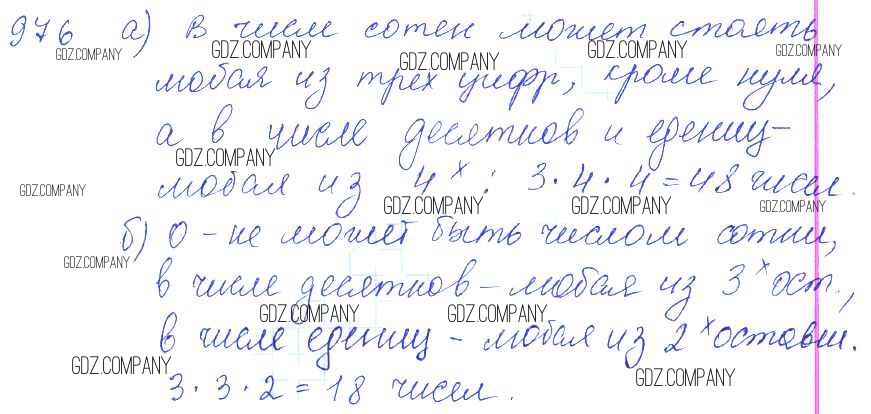 976 а) в числе сотен может стоять
GDZ.COMPANY GDZ.COMPANY GDZ.COMPANY GDZ.COMPANY GDZ.COMPANY
любая из трех цифр, кроме нуля,
а в числе десятков и едениц-
GDZ.COMPANY
любая из 4х: 3·4·4=48 чисел.
GDZ.COMPANY GDZ.COMPANY GDZ.COMPANY GDZ.COMPANY
б) 0 - не может быть числом сотни,
GDZ.COMPANY
в числе десятков - любая из 3х ост.,
GDZ.COMPANY GDZ.COMPANY
в числе едениц - любая из 2х оставш.
GDZ.COMPANY GDZ.COMPANY
3·3·2=18 чисел.